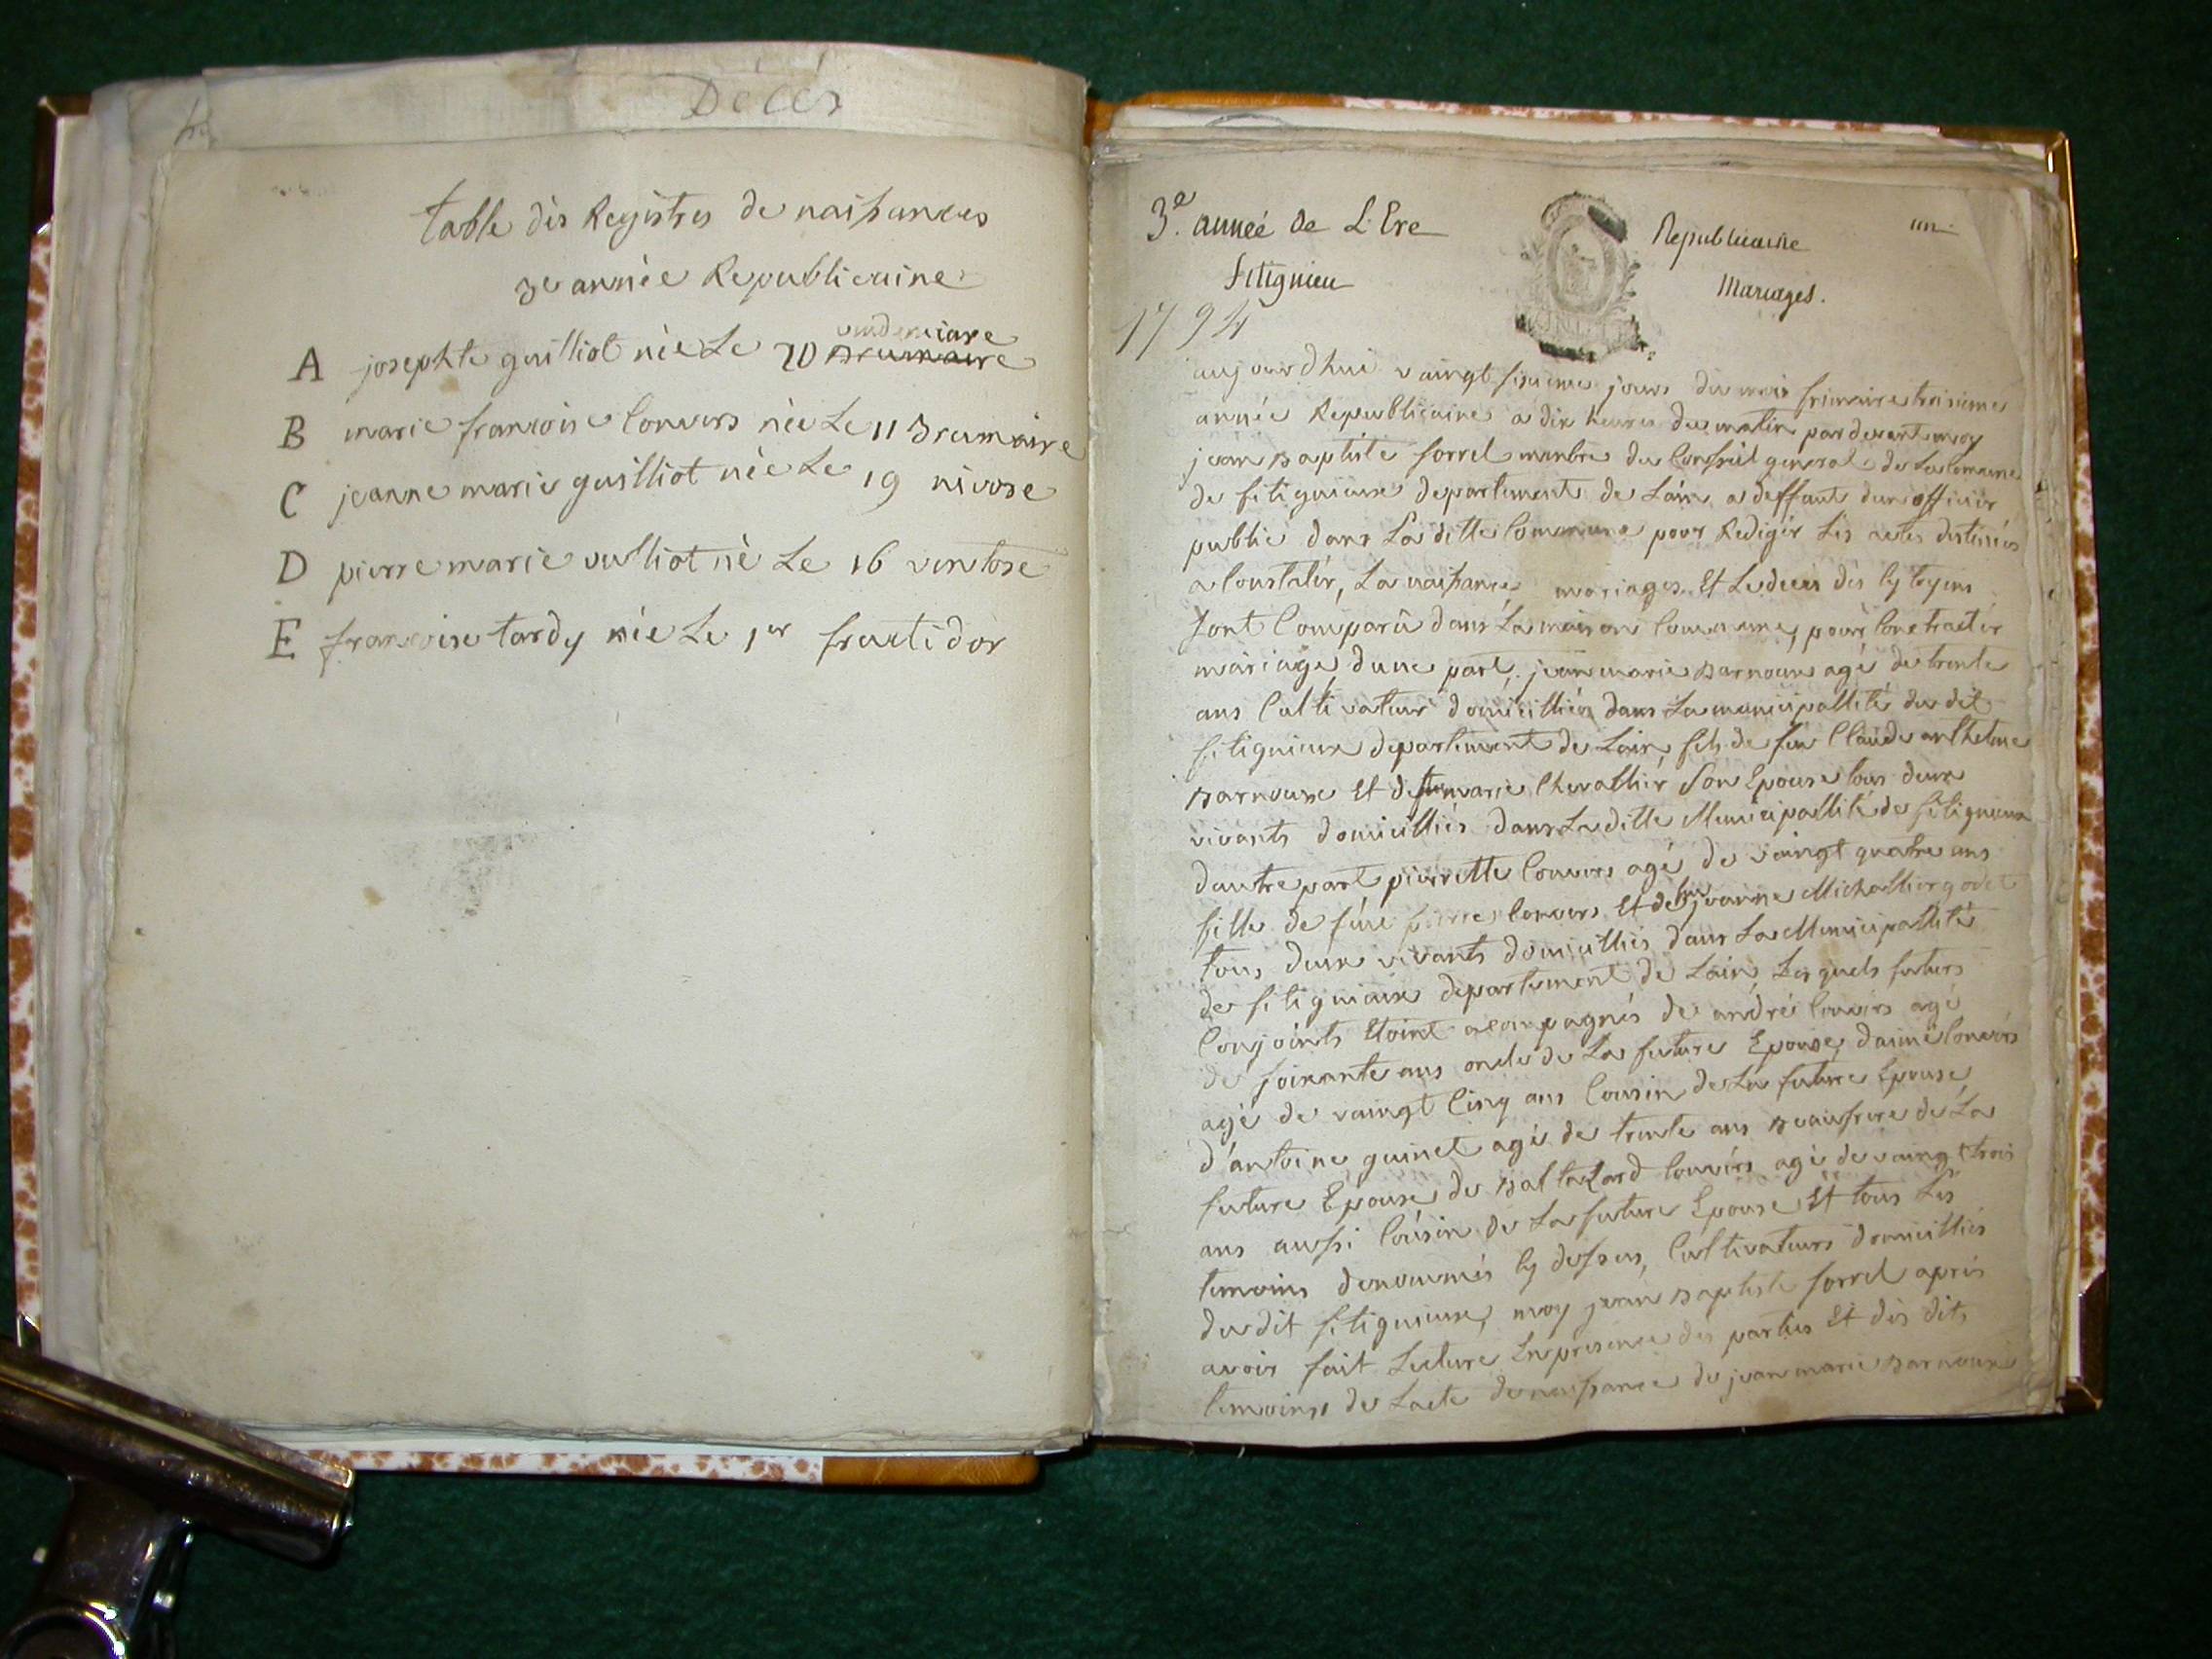 Décés
table dès Registres de naissances
3e année Republicaine
vendemiare
A josephte guilliot née Le 20 Brumaire
B marie francoise Convers née Le 11 Brumaire
C jeanne marie guilliot née Le 19 nivose
D pierre marie vulliot né Le 16 ventose
E francoise tardy née Le 1er fructidor
3e. année de L'Ere Republicaine un
fitignieu Mariages.
1794
aujourdhui vaingt sixieme jours du mois frimaire troisieme
année Republicaine a dix heures du matin par devant moy
jean Baptiste sorrel membre du Conseil general de La Comune
de fitignieux departement de Lain a deffaut dun officier
public dans La ditte Commune pour Rediger Les actes destinés
a Constatér, La naissance mariages Et Le deces dès Cytoyens
sont Comparû dans La maison Commune, pour Contracter
mariage dune part, jean marie Barnoux agé de trente
ans Cultivateur domicilliér dans La municipallité du dit
fitignieux departement de Lain, fils de feu Claude anthelme
Barnoux Et de feu marie Chevallier Son Epouse tous deux
vivants domicilliés dans La ditte Municipallité de fitignieux
dautre part pierrette Convers agé de vaingt quatre ans
fille de feue pierre Convers Et de feu jeanne Michallier godet
tous deux vivants domicilliés dans La Municipallité
de fitignieux departement de Lain, Lesquels futurs
Conjoints Etoint acompagnés de andré Convers agé
de soixante ans oncle de La future Epouse, daimé Convers
agé de vaingt Cinq ans Cousin de La future Epouse,
d'antoine guinet agé de trente ans Beaufrere de La
future Epouse, de Baltazard Convérs agé de vaingt trois
ans aussi Coúsin de La future Epouse Et tous Les
temoins denommés Cy dessus, Cultivateurs domicilliés
du dit fitignieux, moy jean Baptiste sorrel aprés
avoir fait Lecture En presence des parties Et dès dits
temoins de Lacte de naissance de jean marie Barnoux